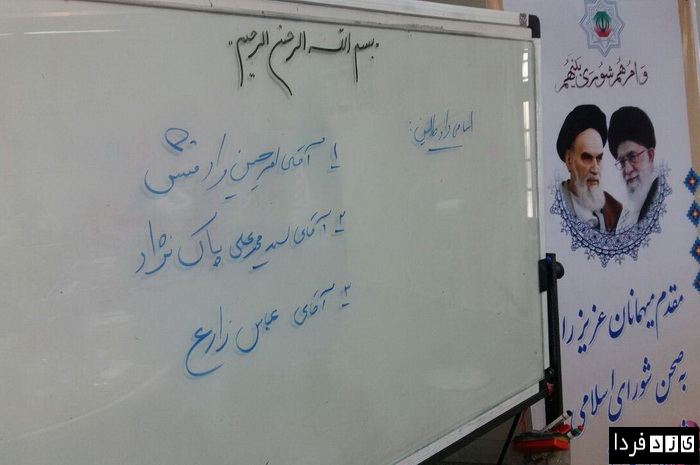 بسم الله الرحمن الرحیم
اسامی
۱ آقای امیرحسین رادمنش
۲ آقای سید محمدعلی پاک نژاد
۳ آقای عباس زارع
وَ اَمرُهُم شورى بَینَهُم
مقدم میهمانان عزیز را
به صحن شورای اسلامی
یزد فردا